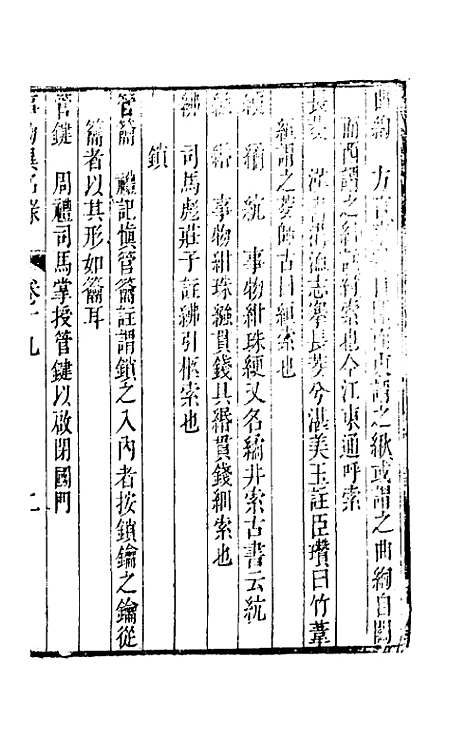 曲綯 方言 謂之紂或謂之曲綯自關
而西謂之紂 索也今江東通呼索
長茭 漢書溝洫志搴長茭兮湛美玉註臣瓚曰竹葦
絙謂之茭師古曰絙索也
綆 繘 統 事物紺珠綆又名繘井索古書云統
繦 緡 事物紺珠繦貫錢具緡貫錢細索也
紼 司馬彪莊子註紼引柩索也
鎖
管籥 禮記慎管籥註謂鎖之入內者按鎖鑰之鑰從
籥者以其形如籥耳
管鍵 周禮司馬掌授管鍵以啟閉國門
事物異名錄 卷十九 七